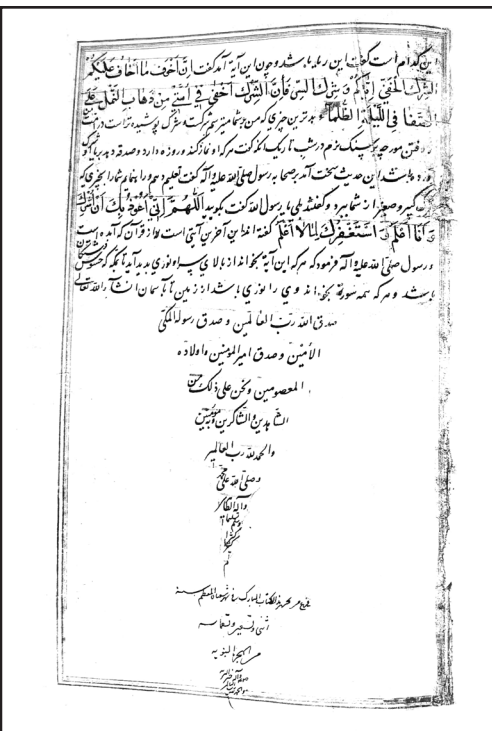 این کدام است گفت این ریا باشد و چون این آیة آمد گفت اِنَّ اَخْوَفَ ما اَخافُ عَلَیْکُمْ
الشِّرْكَ الْخَفِیَّ اِیّاکُمْ وَ شِرْكَ السِّرِّ فَاِنَّ الشِّرْكَ اَخْفی فی اُمَّتی مِنْ دَبیبِ النَّمْلِ عَلَی
الصَّفا فِی اللَّیْلَةِ الظَّلْماءِ و بدترین چیزی که من بر شما میترسم شرکست و شرک پوشیده‌تر است در امت
از رفتن مورچه بر سنک نرم در شب تاریک آنکه گفت هر که او نماز کند و روزه دارد و صدقه دهد بریا
باشد این حدیث سخت آمد بر صحابه رسول صلّی الله علیه و آله گفت تعلیم دهم و راه نمایم شما را بچیزی که
کبیر و صغیر از شما ببرد گفتند بلی یا رسول الله گفت بگوید اَللّهُمَّ اِنّی اَعُوذُ بِكَ اَنْ اُشْرِكَ بِكَ
وَ اَنَا اَعْلَمُ وَ اَسْتَغْفِرُكَ لِما لا اَعْلَمُ گفته‌اند این آخرین آیتی است که از قرآن که آمده است
و رسول صلّی الله علیه و آله فرمود که هر که این آیة بخواند از بالای سر او نوری پدید آید تا بمکه که حشو
باشد و هر که همه سورة بخواند وی را نوری باشد از زمین تا بآسمان انشاء الله تعالی
صدق الله ربّ العالمین و صدق رسوله المکی
الأمین و صدق امیر المؤمنین و اولاده
المعصومین و نحن علی ذلك من
الشاهدین و الشاکرین
و الحمد لله رب العالمین
و صلّی الله علی محمد
و آله الطاهرین
کثیرا
تم
الکتاب المبارک شعبان المعظم سنه
اثنی و تسعین و تسعمائه
من الهجرة النبویه